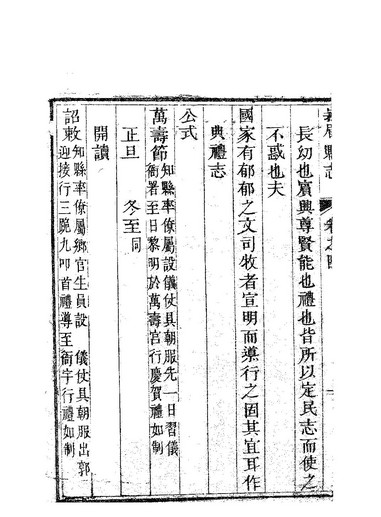 縣志 卷之四
長幼也賓興尊賢能也禮也皆所以定民志而使之
不惑也夫
國家有郁郁之文司牧者宣明而遵行之固其宜耳作
典禮志
公式
萬壽節知縣率僚屬設儀仗具朝服先一日習儀
衙署至日黎明於萬壽宮行慶賀禮如制
正旦 冬至同
開讀
詔敕知縣率僚屬鄉官生員設 儀仗具朝服出郭
迎接行三跪九叩首禮導至衙宇行禮如制